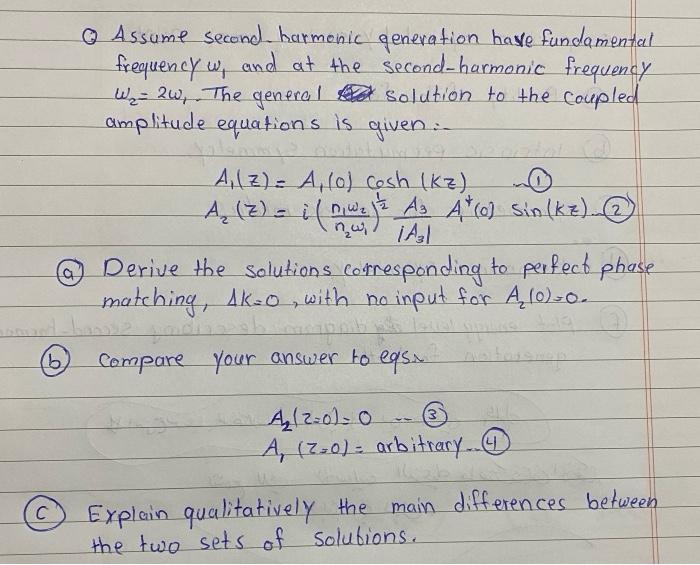 Q Assume second-harmonic generation have fundamental
frequency ω₁ and at the second-harmonic frequency
ω₂=2ω₁. The general solution to the coupled
amplitude equations is given:-
A₁(z) = A₁(0) cosh (Kz) --①
A₂(z) = i (n₁ω₂/n₂ω₁)^½ A₃/|A₃| A₁*(0) sin(kz)--②
ⓐ Derive the solutions corresponding to perfect phase
matching, Δk=0, with no input for A₂(0)=0.
ⓑ compare your answer to eqs.
A₂(z=0)=0 --③
A₁ (z=0)= arbitrary--④
Ⓒ Explain qualitatively the main differences between
the two sets of solutions.